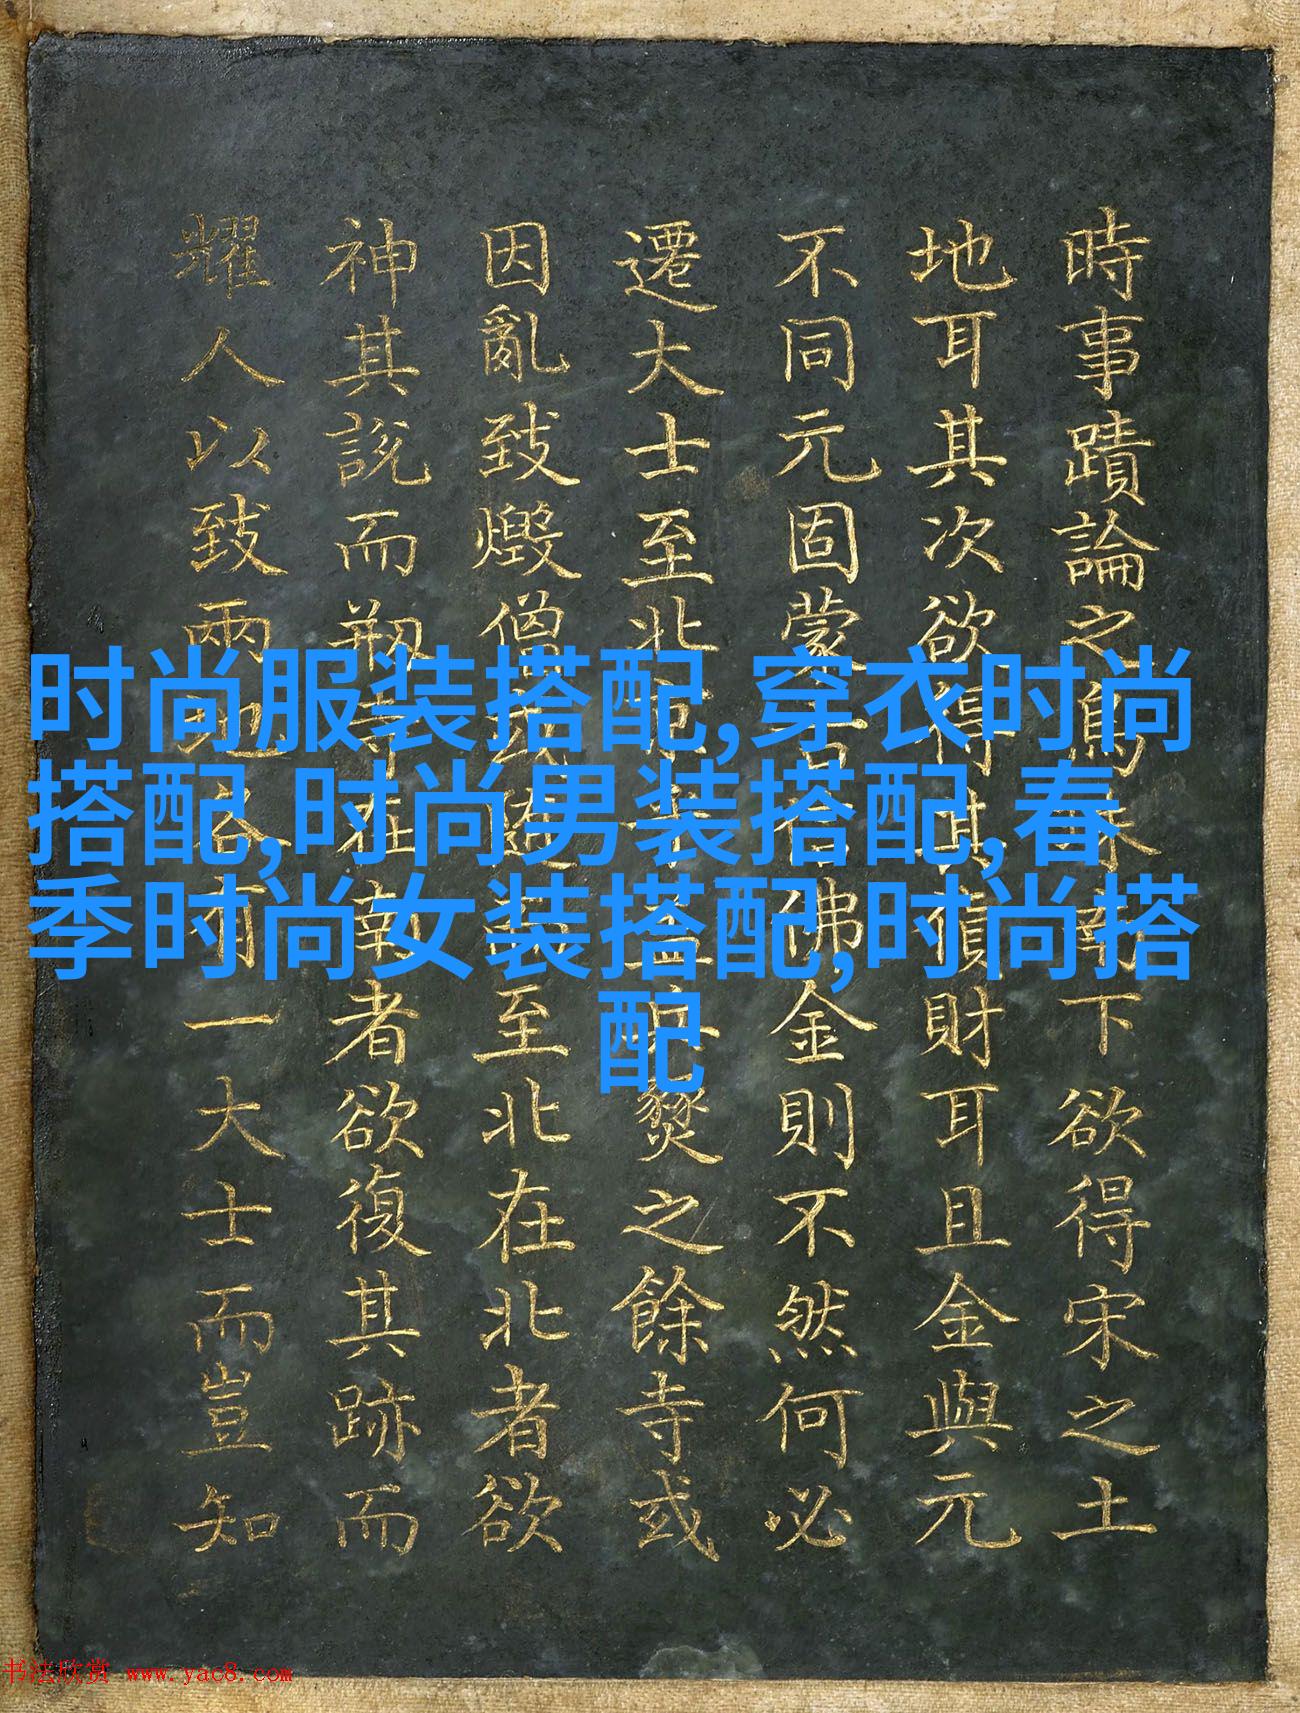 時事蹟論之鳥
下欲得宋之土
地耳其次欲得其
財耳且金與元
不同元固蒙古
佛金則不然何必
遷大士至北
燹之餘寺或
因亂致燬僧
至北在北者欲
神其說而刱寺在南者欲復其跡而
耀人以致兩地各有一大士而豈知
时尚服装搭配,穿衣时尚
搭配,时尚男装搭配,春
季时尚女装搭配,时尚搭
配
书法欣赏 www.yac8.com